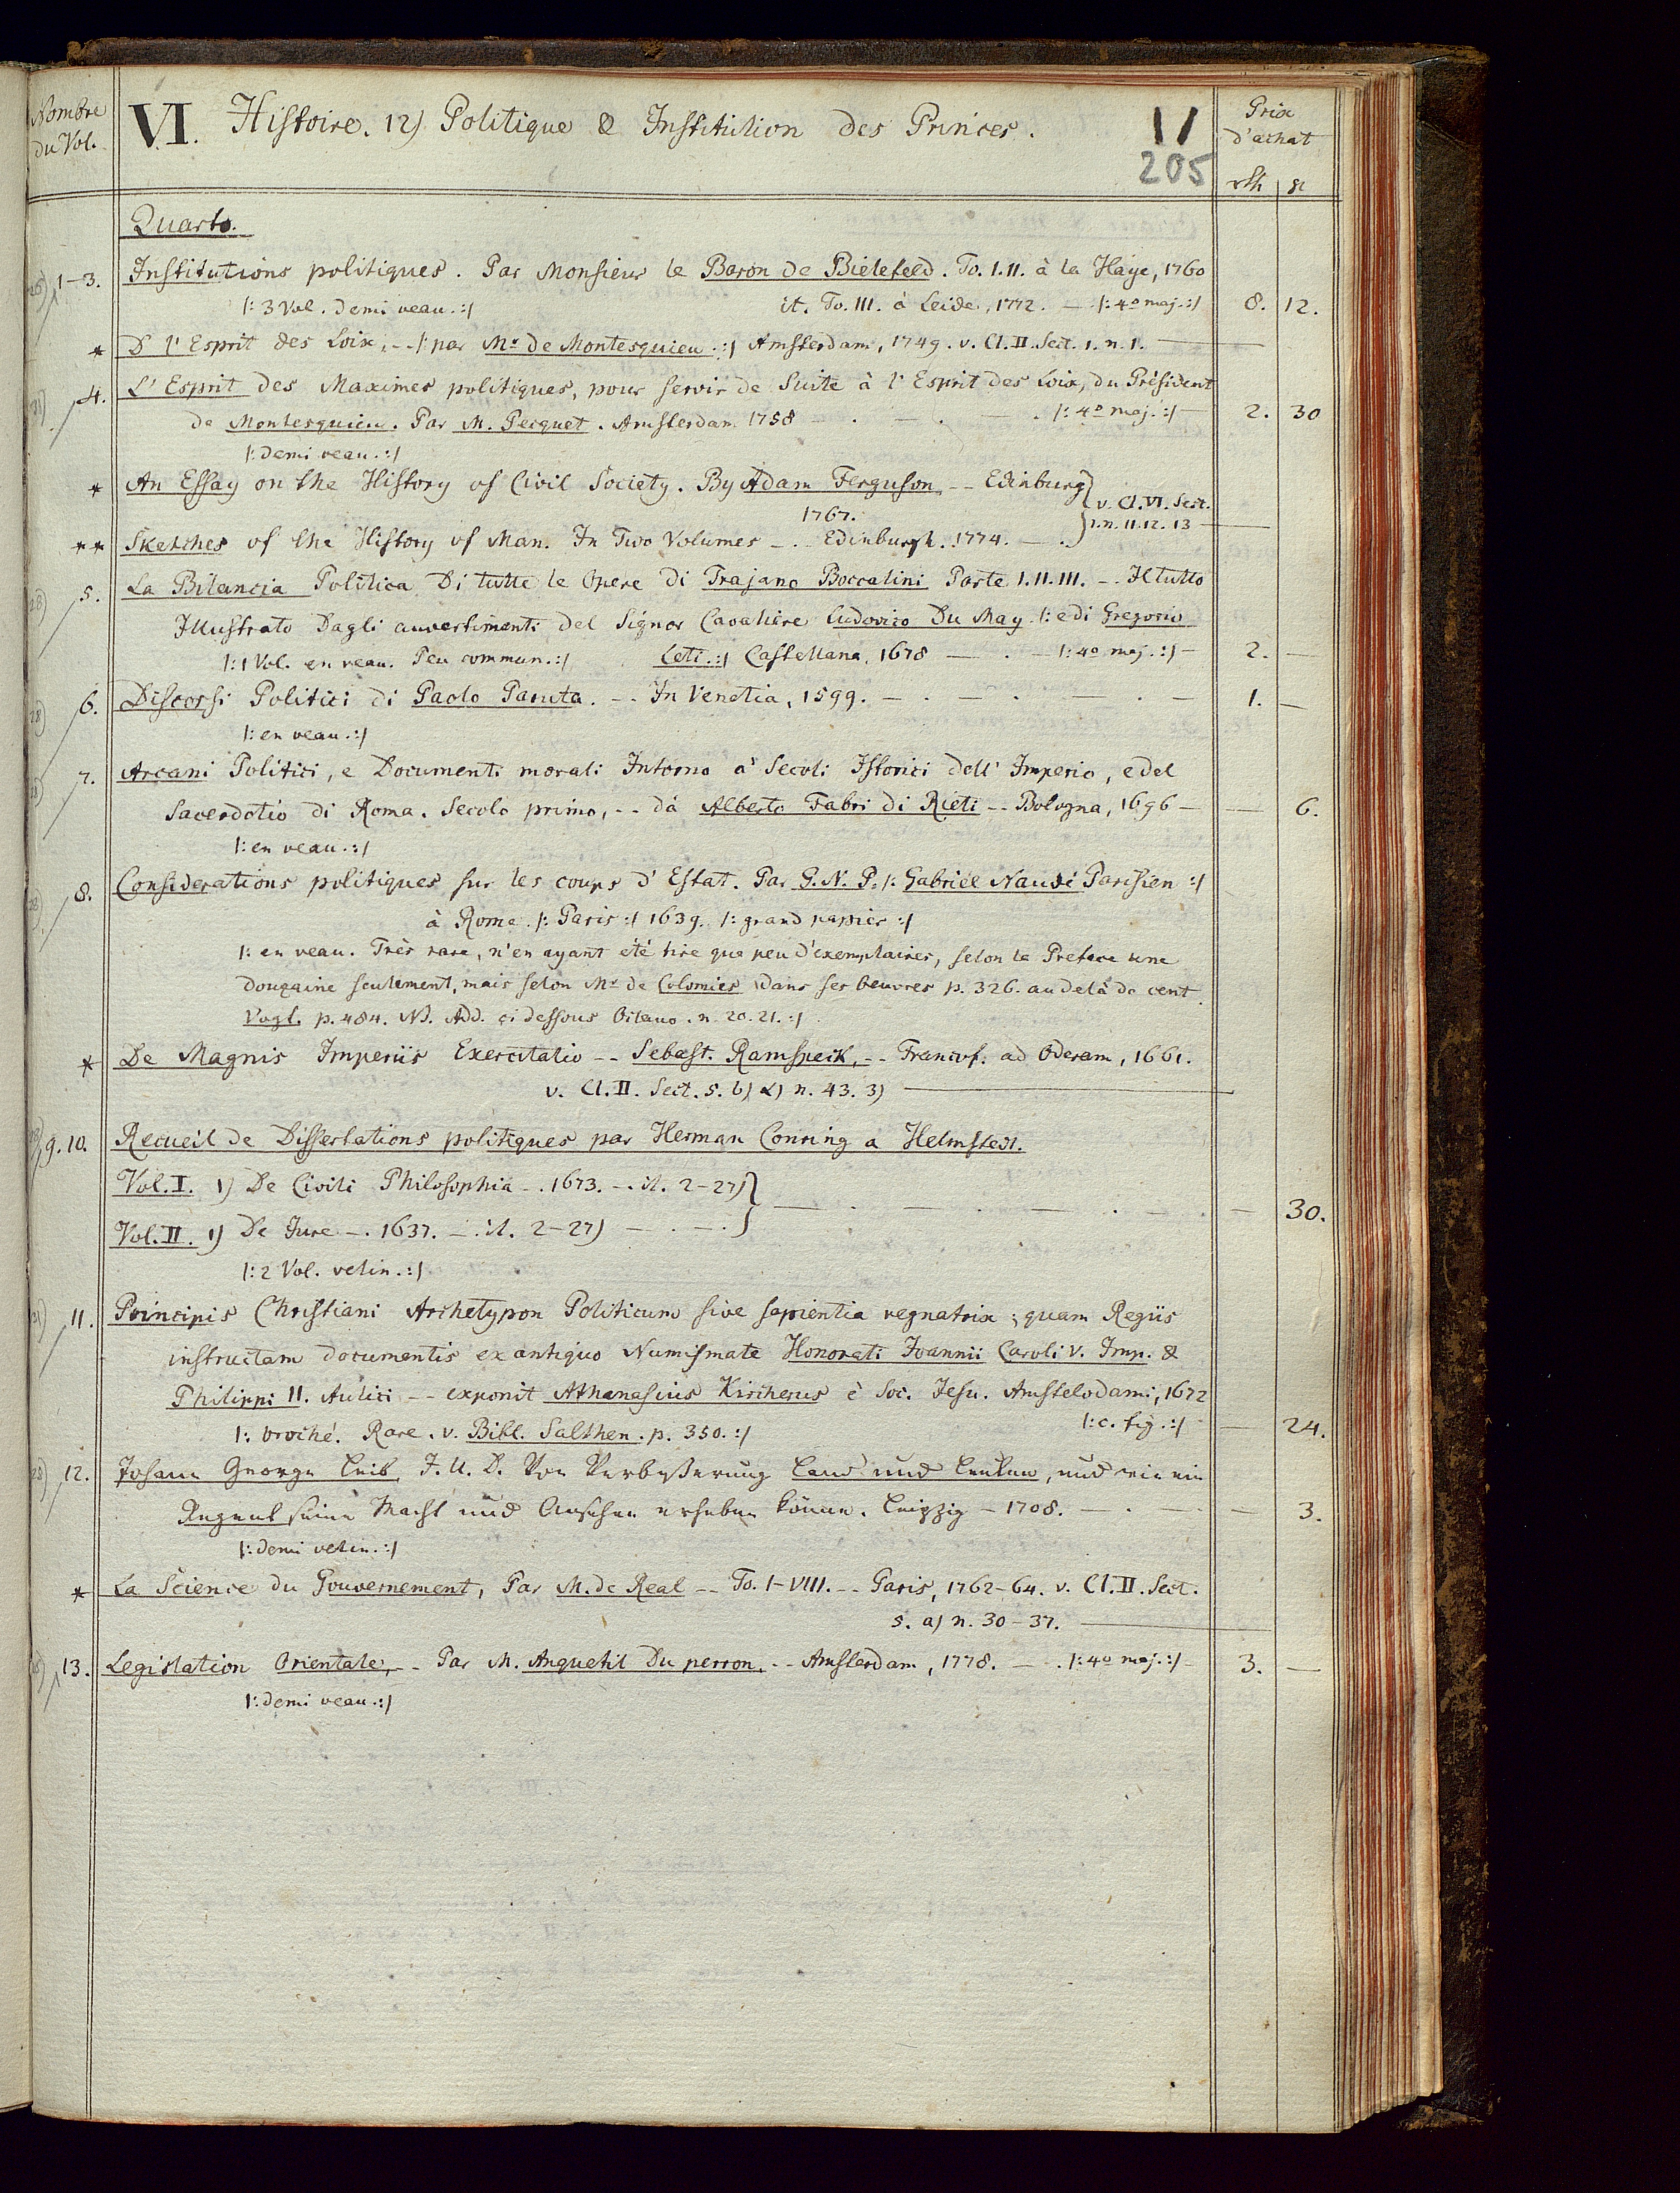 Nombre
du Vol.
VI. Histoire. 12) Politique & Institution des Princes.
11
205
Prix
d'achat
rth gl
Quarto.
1-3. Institutions politiques. Par Monsieur le Baron de Bielefeld. To. I. II. à la Haye, 1760
|: 3 Vol. demi veau. :| it. To. III. à Leide, 1772. - |: 4º maj. :| 8. 12.
* D l'Esprit des Loix, -- |: par Mr de Montesquieu :| Amsterdam, 1749. v. Cl. II. Sect. 1. n. 1.
4. L'Esprit des Maximes politiques, pour servir de Suite à l'Esprit des Loix, du Président
de Montesquieu. Par M. Pecquet. Amsterdam 1758 - . - . |: 4º maj. :| 2. 30
|: demi veau. :|
* An Essay on the History of Civil Society. By Adam Ferguson, -- Edinburg
1767. v. Cl. VI. Sect.
1. n. 11. 12. 13
** Sketches of the History of Man. In Two Volumes -. Edinburgh. 1774. - .
5. La Bilancia Politica Di tutte le Opere di Trajano Boccalini Parte I. II. III. -. Il tutto
Illustrato Dagli avvertimenti del Signor Cavaliere Ludovico Du May |: e di Gregorio
|: 1 Vol. en veau. Peu commun. :| Leti. :| Castellana, 1678 - . - |: 4º maj. :| - 2. -
6. Discorsi Politici di Paolo Paruta. -- In Venetia, 1599. - . - . - . - 1. -
|: en veau. :|
7. Arcani Politici, e Documenti morali Intorno a' Secoli Istorici dell' Imperio, e del
Sacerdotio di Roma. Secolo primo, -- dà Alberto Fabri di Rieti -- Bologna, 1696 - - 6.
|: en veau. :|
8. Considerations politiques sur les coups d'Estat. Par G. N. P. |: Gabriel Naudé Parisien :|
à Rome. |: Paris :| 1639. |: grand papier :|
|: en veau. Très rare, n'en ayant été tiré que peu d'exemplaires, selon la Preface une
douzaine seulement, mais selon Mr de Colomiés dans ses Oeuvres p. 326. au delà de cent.
Vogt. p. 484. NB. Add. ci dessous Octavo. n. 20. 21. :|
* De Magnis Imperiis Exercitatio -- Sebast. Ramspeck, -- Francof. ad Oderam, 1661.
v. Cl. II. Sect. 5. b) α) n. 43. 3)
9. 10. Recueil de Dissertations politiques par Herman Conring a Helmstedt.
Vol. I. 1) De Civili Philosophia -. 1673. -. it. 2-27)
- 30.
Vol. II. 1) De Jure -. 1637. -. it. 2-27) - . - .
|: 2 Vol. velin. :|
11. Principis Christiani Archetypon Politicum sive sapientia regnatrix; quam Regiis
instructam documentis ex antiquo Numismate Honorati Joannii Caroli V. Imp. &
Philippi II. Aulici -- exponit Athanasius Kircherus è Soc. Jesu. Amstelodami, 1672
|: broché. Rare. v. Bibl. Salthen. p. 350. :| |: c. fig. :| - 24.
12. Johann George Leib, J. U. D. Von Verbeßerung Land und Leuten, und wie ein
Regent seine Macht und Ansehen erheben könne. Leipzig - 1708. - . - - 3.
|: demi velin. :|
* La Science du Gouvernement, Par M. de Real -- To. I-VIII. -- Paris, 1762-64. v. Cl. II. Sect.
5. a) n. 30-37.
13. Legislation Orientale, -- Par M. Anquetil Du perron, -- Amsterdam, 1778. - . |: 4º maj. :| - 3. -
|: demi veau. :|